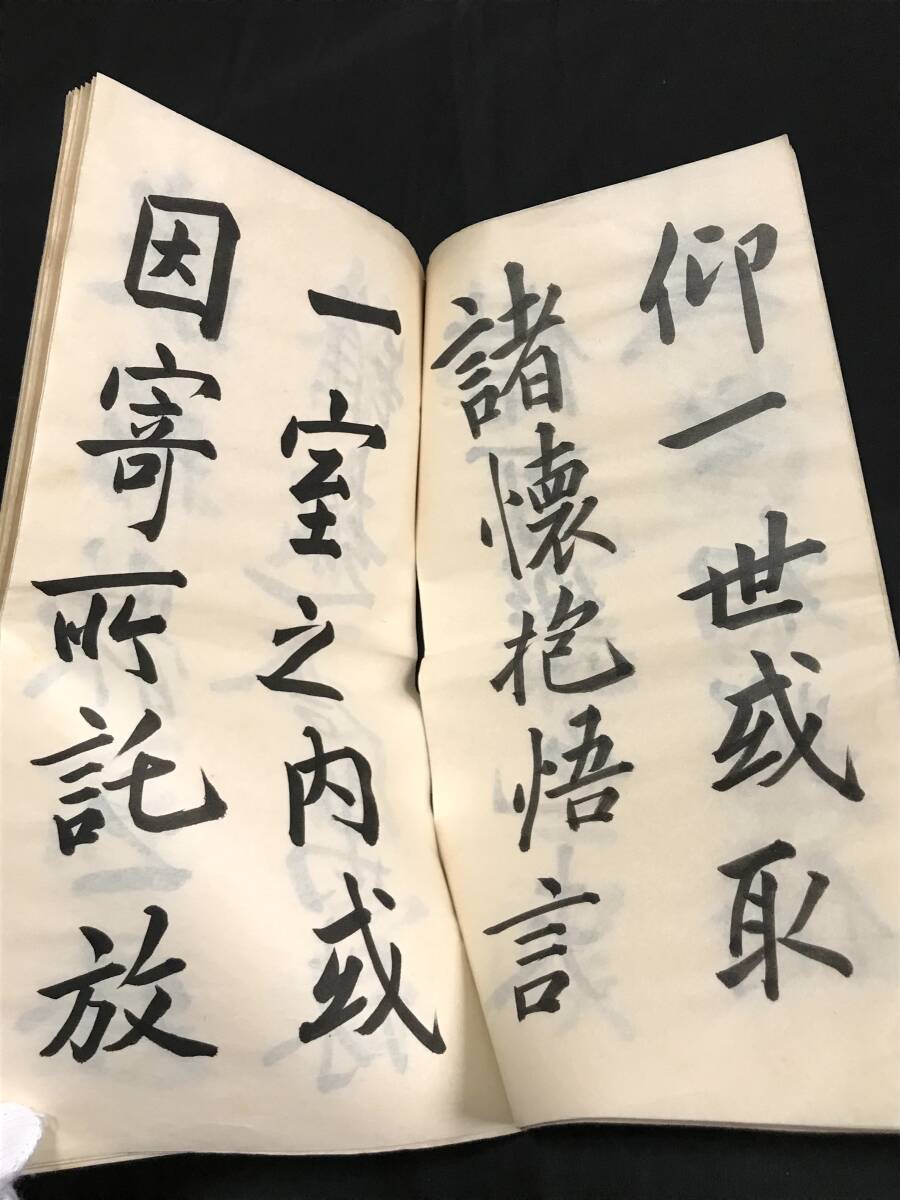 仰一世或取
諸懐抱悟言
一室之内或
因寄所託放